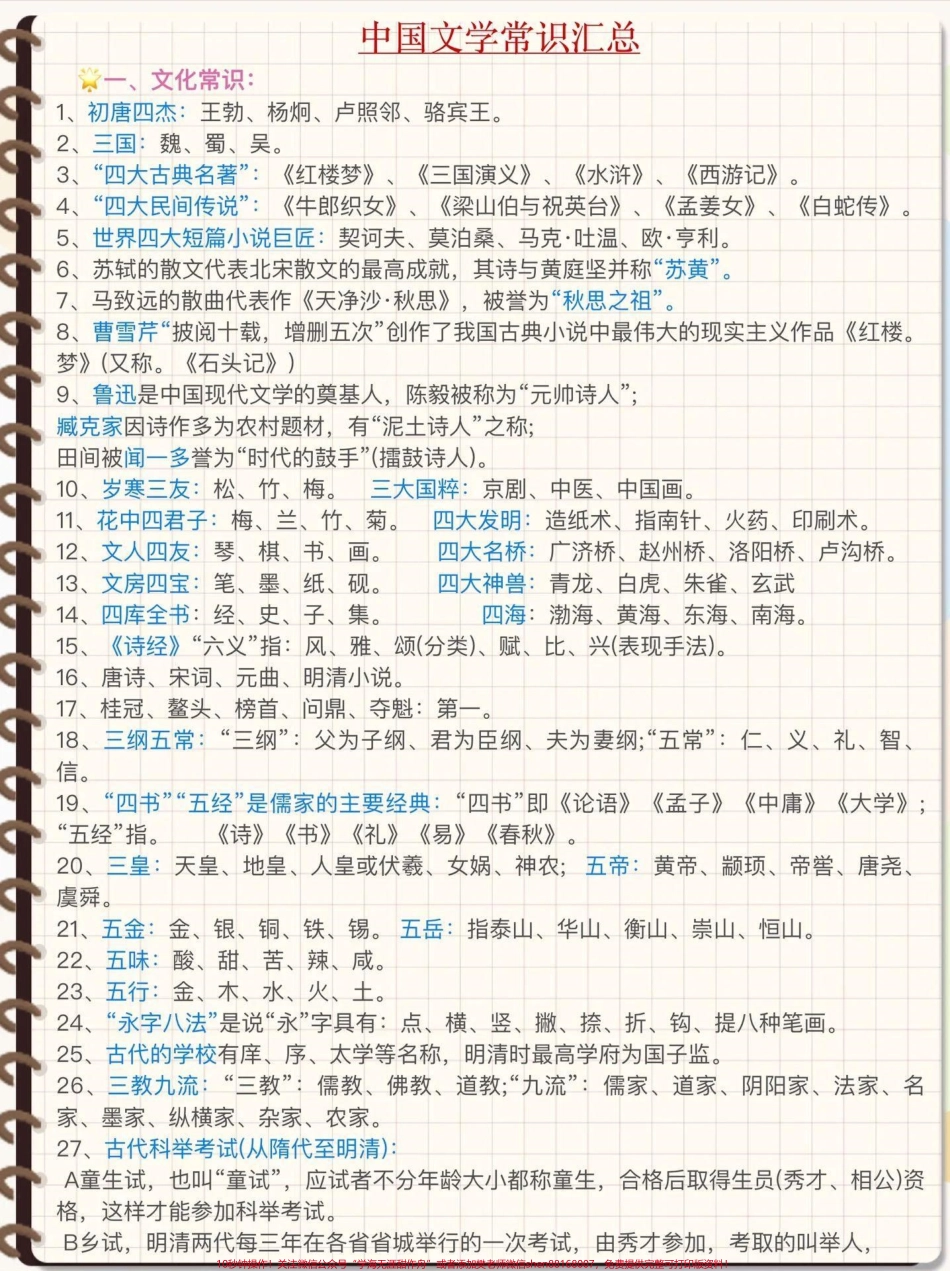 中国文学常识汇总
一、文化常识：
1、初唐四杰：王勃、杨炯、卢照邻、骆宾王。
2、三国：魏、蜀、吴。
3、“四大古典名著”：《红楼梦》、《三国演义》、《水浒》、《西游记》。
4、“四大民间传说”：《牛郎织女》、《梁山伯与祝英台》、《孟姜女》、《白蛇传》。
5、世界四大短篇小说巨匠：契诃夫、莫泊桑、马克·吐温、欧·亨利。
6、苏轼的散文代表北宋散文的最高成就，其诗与黄庭坚并称“苏黄”。
7、马致远的散曲代表作《天净沙·秋思》，被誉为“秋思之祖”。
8、曹雪芹“披阅十载，增删五次”创作了我国古典小说中最伟大的现实主义作品《红楼。
梦》(又称。《石头记》)
9、鲁迅是中国现代文学的奠基人，陈毅被称为“元帅诗人”;
臧克家因诗作多为农村题材，有“泥土诗人”之称;
田间被闻一多誉为“时代的鼓手”(擂鼓诗人)。
10、岁寒三友：松、竹、梅。 三大国粹：京剧、中医、中国画。
11、花中四君子：梅、兰、竹、菊。 四大发明：造纸术、指南针、火药、印刷术。
12、文人四友：琴、棋、书、画。 四大名桥：广济桥、赵州桥、洛阳桥、卢沟桥。
13、文房四宝：笔、墨、纸、砚。 四大神兽：青龙、白虎、朱雀、玄武
14、四库全书：经、史、子、集。 四海：渤海、黄海、东海、南海。
15、《诗经》“六义”指：风、雅、颂(分类)、赋、比、兴(表现手法)。
16、唐诗、宋词、元曲、明清小说。
17、桂冠、鳌头、榜首、问鼎、夺魁：第一。
18、三纲五常：“三纲”：父为子纲、君为臣纲、夫为妻纲;“五常”：仁、义、礼、智、
信。
19、“四书”“五经”是儒家的主要经典：“四书”即《论语》《孟子》《中庸》《大学》;
“五经”指。 《诗》《书》《礼》《易》《春秋》。
20、三皇：天皇、地皇、人皇或伏羲、女娲、神农; 五帝：黄帝、颛顼、帝喾、唐尧、
虞舜。
21、五金：金、银、铜、铁、锡。 五岳：指泰山、华山、衡山、崇山、恒山。
22、五味：酸、甜、苦、辣、咸。
23、五行：金、木、水、火、土。
24、“永字八法”是说“永”字具有：点、横、竖、撇、捺、折、钩、提八种笔画。
25、古代的学校有庠、序、太学等名称，明清时最高学府为国子监。
26、三教九流：“三教”：儒教、佛教、道教;“九流”：儒家、道家、阴阳家、法家、名
家、墨家、纵横家、杂家、农家。
27、古代科举考试(从隋代至明清)：
A童生试，也叫“童试”，应试者不分年龄大小都称童生，合格后取得生员(秀才、相公)资
格，这样才能参加科举考试。
B乡试，明清两代每三年在各省省城举行的一次考试，由秀才参加，考取的叫举人，